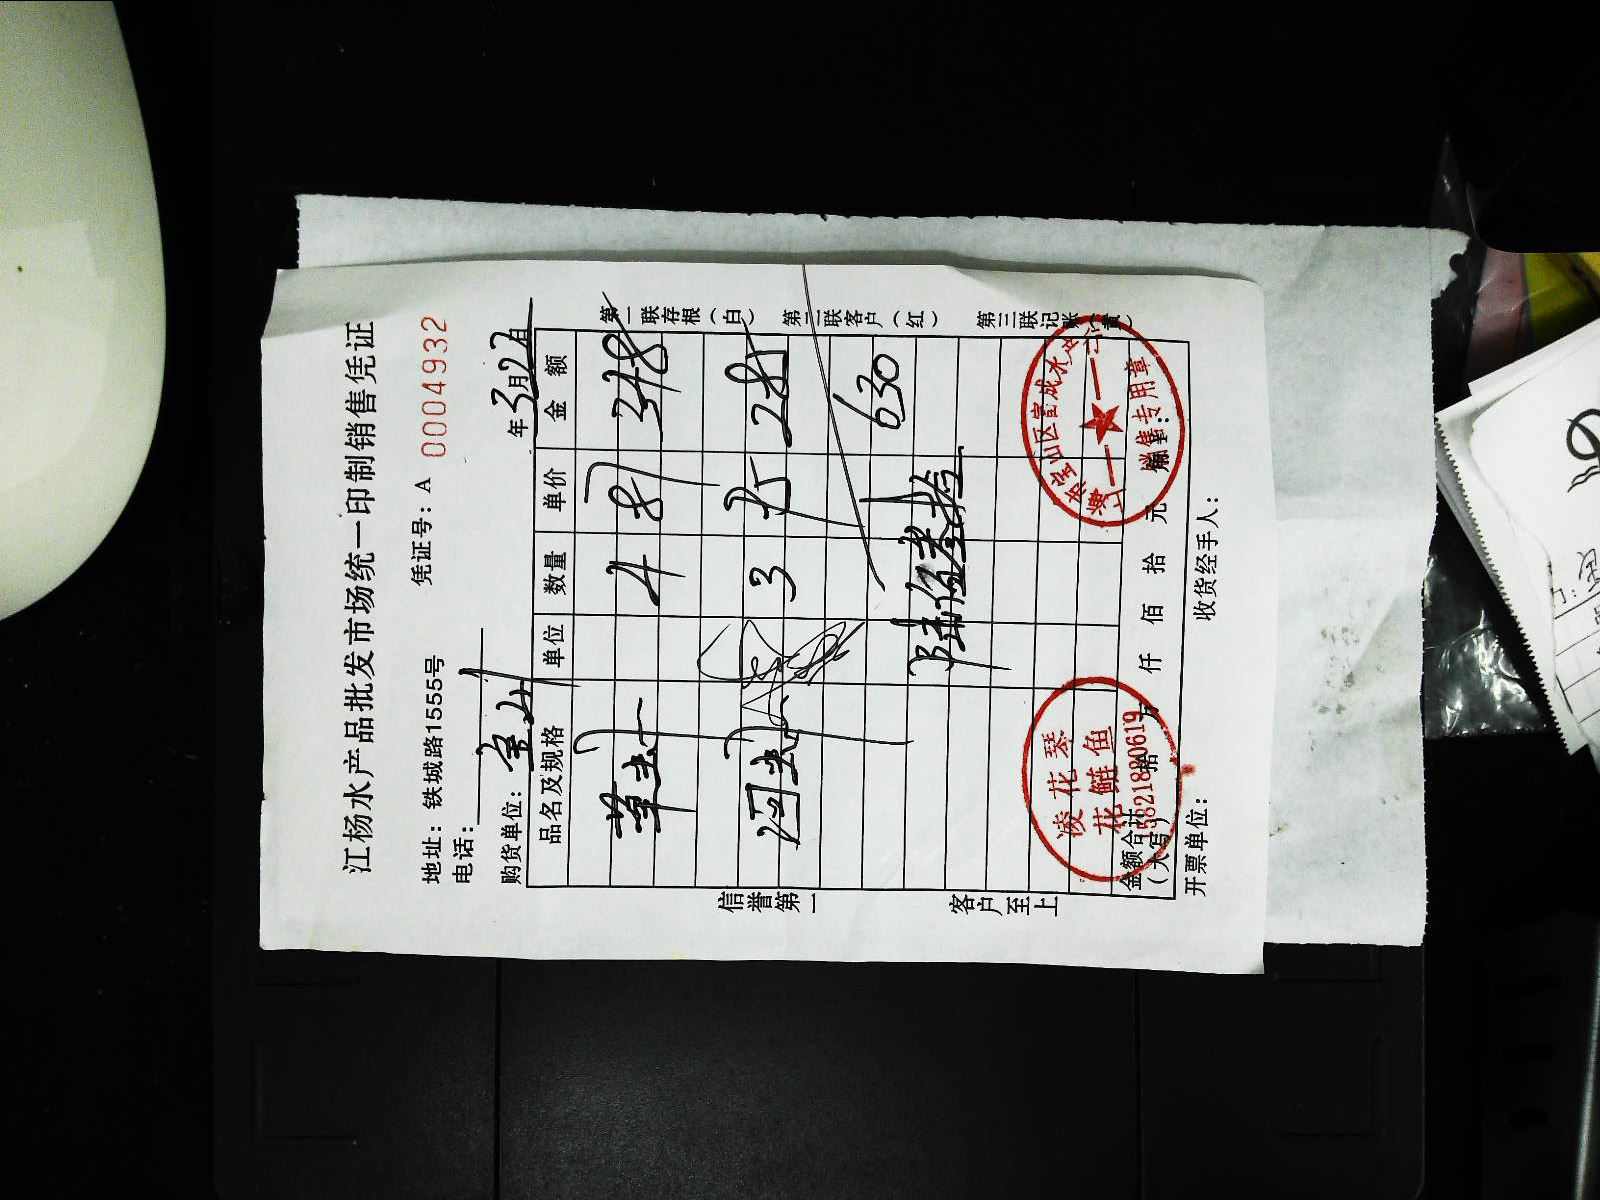 江杨水产品批发市场统一印制销售凭证
地址：铁城路1555号 凭证号：A 0004932
电话：
购货单位： 年3月27日
品名及规格 单位 数量 单价 金额
4 87 348
3 282
630
陆佰叁拾
信誉第一
客户至上
第一联存根（白） 第二联客户（红） 第三联记账（黄）
金额合计（大写） 拾 万 仟 佰 拾 元
凌花琴
花鲢鱼
销售专用章
开票单位： 收货经手人：